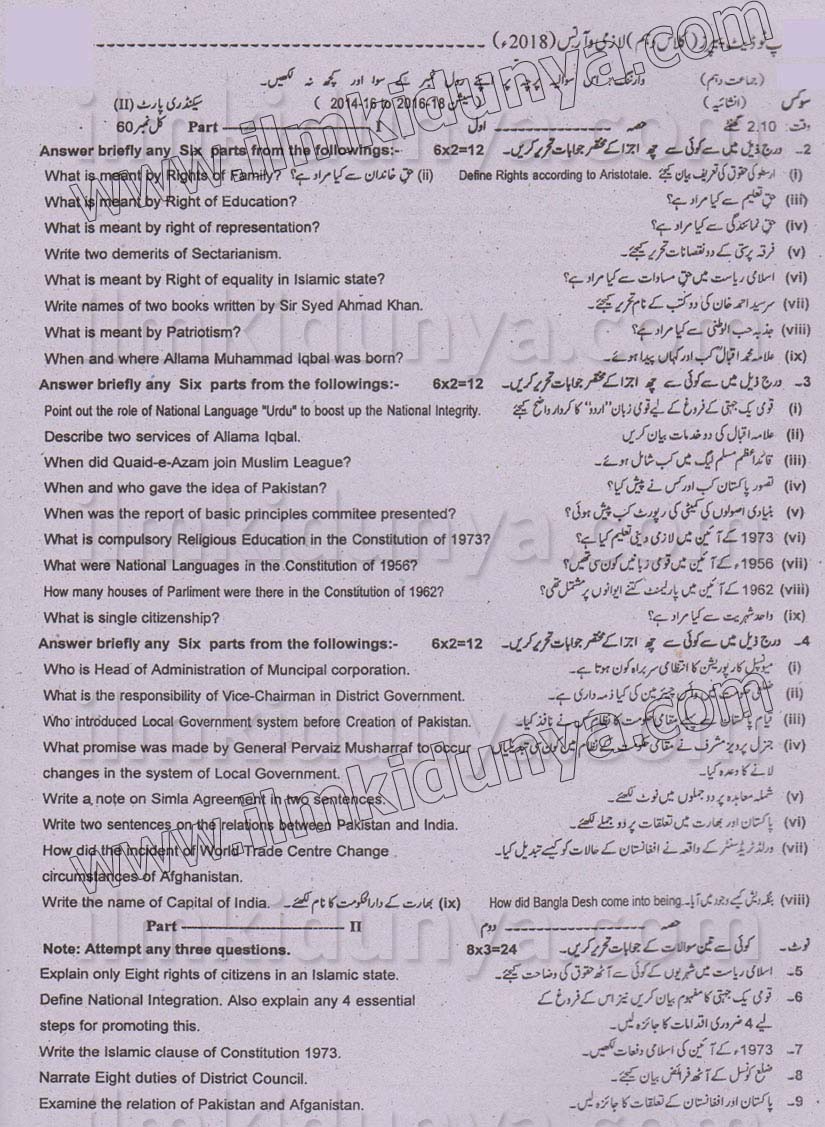 پ ٹو ڈیٹ پیپرز (کلاس دہم) لازمی و آرٹس (2018ء)
(جماعت دہم) وارننگ:۔ اس سوالیہ پرچہ پر اپنے رول نمبر کے سوا اور کچھ نہ لکھیں۔
سوکس (انشائیہ) (سیشن 2014-16 to 2016-18) سیکنڈری پارٹ (II)
وقت: 2.10 گھنٹے حصہ ---------------- اول Part ---------------- I کل نمبر 60
Answer briefly any Six parts from the followings:- 6x2=12 2۔ درج ذیل میں سے کوئی سے چھ اجزا کے مختصر جوابات تحریر کریں۔
What is meant by Rights of Family? حق خاندان سے کیا مراد ہے؟ (ii) Define Rights according to Aristotale. ارسطو کی حقوق کی تعریف بیان کیجئے (i)
What is meant by Right of Education? حق تعلیم سے کیا مراد ہے؟ (iii)
What is meant by right of representation? حق نمائندگی سے کیا مراد ہے؟ (iv)
Write two demerits of Sectarianism. فرقہ پرستی کے دو نقصانات تحریر کیجئے۔ (v)
What is meant by Right of equality in Islamic state? اسلامی ریاست میں حق مساوات سے کیا مراد ہے؟ (vi)
Write names of two books written by Sir Syed Ahmad Khan. سرسید احمد خان کی دو کتب کے نام تحریر کیجئے۔ (vii)
What is meant by Patriotism? جذبہ حب الوطنی سے کیا مراد ہے؟ (viii)
When and where Allama Muhammad Iqbal was born? علامہ محمد اقبالؒ کب اور کہاں پیدا ہوئے۔ (ix)
Answer briefly any Six parts from the followings:- 6x2=12 3۔ درج ذیل میں سے کوئی سے چھ اجزا کے مختصر جوابات تحریر کریں۔
Point out the role of National Language "Urdu" to boost up the National Integrity. قومی یک جہتی کے فروغ کے لیے قومی زبان "اردو" کا کردار واضح کیجئے (i)
Describe two services of Allama Iqbal. علامہ اقبال کی دو خدمات بیان کریں (ii)
When did Quaid-e-Azam join Muslim League? قائداعظم مسلم لیگ میں کب شامل ہوئے۔ (iii)
When and who gave the idea of Pakistan? تصور پاکستان کب اور کس نے پیش کیا؟ (iv)
When was the report of basic principles commitee presented? بنیادی اصولوں کی کمیٹی کی رپورٹ کب پیش ہوئی؟ (v)
What is compulsory Religious Education in the Constitution of 1973? 1973ء کے آئین میں لازمی دینی تعلیم کیا ہے؟ (vi)
What were National Languages in the Constitution of 1956? 1956ء کے آئین میں قومی زبانیں کون سی تھیں؟ (vii)
How many houses of Parliment were there in the Constitution of 1962? 1962 کے آئین میں پارلیمنٹ کتنے ایوانوں پر مشتمل تھی؟ (viii)
What is single citizenship? واحد شہریت سے کیا مراد ہے؟ (ix)
Answer briefly any Six parts from the followings:- 6x2=12 4۔ درج ذیل میں سے کوئی سے چھ اجزا کے مختصر جوابات تحریر کریں۔
Who is Head of Administration of Muncipal corporation. میونسپل کارپوریشن کا انتظامی سربراہ کون ہوتا ہے۔ (i)
What is the responsibility of Vice-Chairman in District Government. ضلعی حکومت میں وائس چیئرمین کی کیا ذمہ داری ہے۔ (ii)
Who introduced Local Government system before Creation of Pakistan. قیام پاکستان سے پہلے مقامی حکومت کا نظام کس نے نافذ کیا۔ (iii)
What promise was made by General Pervaiz Musharraf to occur جنرل پرویز مشرف نے مقامی حکومت کے نظام میں کون سی تبدیلیاں (iv)
changes in the system of Local Government. لانے کا وعدہ کیا۔
Write a note on Simla Agreement in two sentences. شملہ معاہدہ پر دو جملوں میں نوٹ لکھئے۔ (v)
Write two sentences on the relations between Pakistan and India. پاکستان اور بھارت میں تعلقات پر دو جملے لکھئے۔ (vi)
How did the incident of World Trade Centre Change ورلڈ ٹریڈ سنٹر کے واقعہ نے افغانستان کے حالات کو کیسے تبدیل کیا۔ (vii)
circumstances of Afghanistan.
Write the name of Capital of India. بھارت کے دارالحکومت کا نام لکھئے۔ (ix) How did Bangla Desh come into being. بنگلہ دیش کیسے وجود میں آیا۔ (viii)
Part ---------------- II حصہ ---------------- دوم
Note: Attempt any three questions. 8x3=24 نوٹ۔ کوئی سے تین سوالات کے جوابات تحریر کریں۔
Explain only Eight rights of citizens in an Islamic state. 5۔ اسلامی ریاست میں شہریوں کے کوئی سے آٹھ حقوق کی وضاحت کیجئے۔
Define National Integration. Also explain any 4 essential 6۔ قومی یک جہتی کا مفہوم بیان کریں نیز اس کے فروغ کے
steps for promoting this. لیے 4 ضروری اقدامات کا جائزہ لیں۔
Write the Islamic clause of Constitution 1973. 7۔ 1973ء کے آئین کی اسلامی دفعات لکھیں۔
Narrate Eight duties of District Council. 8۔ ضلع کونسل کے آٹھ فرائض بیان کیجئے۔
Examine the relation of Pakistan and Afganistan. 9۔ پاکستان اور افغانستان کے تعلقات کا جائزہ لیں۔
www.ilmkidunya.com